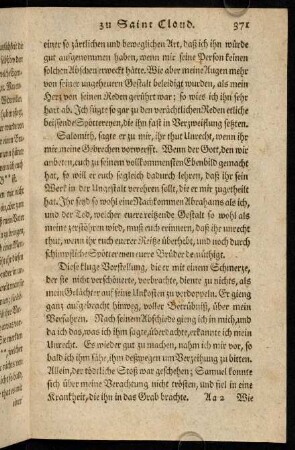 zu Saint Cloud. 371
einer so zärtlichen und beweglichen Art, daß ich ihn würde
gut aufgenommen haben, wenn mir seine Person keinen
solchen Abscheu erweckt hätte. Wie aber meine Augen mehr
von seiner ungeheuren Gestalt beleidigt wurden, als mein
Herz von seinen Reden gerührt war; so wies ich ihn sehr
hart ab. Ich fügte so gar zu den verächtlichen Reden etliche
beissende Spöttereyen, die ihn fast in Verzweiflung setzten.
Salomith, sagte er zu mir, ihr thut Unrecht, wenn ihr
mir meine Gebrechen vorwerfft. Wenn der Gott, den wir
anbeten, euch zu seinem vollkommensten Ebenbild gemacht
hat, so will er euch segleich dadurch lehren, daß ihr sein
Werk in der Ungestalt verehren sollt, die er mir zugetheilt
hat. Ihr seyd so wohl eine Nachkommen Abrahams als ich,
und der Tod, welcher eure reizende Gestalt so wohl als
meine zerstöhren wird, muß euch erinnern, daß ihr unrecht
thut, wenn ihr euch eurer Reitze überhebt, und noch durch
schimpfliche Spöttereyen eure Brüder demüthigt.
Diese kluge Vorstellung, die er mit einem Schmerze,
der sie nicht verschönerte, verbrachte, diente zu nichts, als
mein Gelächter auf seine Unkosten zu verdoppeln. Er gieng
ganz aufgebracht hinweg, voller Betrübniß, über mein
Verfahren. Nach seinem Abschiede gieng ich in mich, und
da ich das, was ich ihm sagte, überdachte, erkannte ich mein
Unrecht. Es wieder gut zu machen, nahm ich mir vor, so
bald ich ihn sähe, ihn deswegen um Verzeihung zu bitten.
Allein, der tödtliche Stoß war geschehen; Samuel konnte
sich über meine Verachtung nicht trösten, und fiel in eine
Krankheit, die ihn in das Grab brachte. Aa 2 Wie